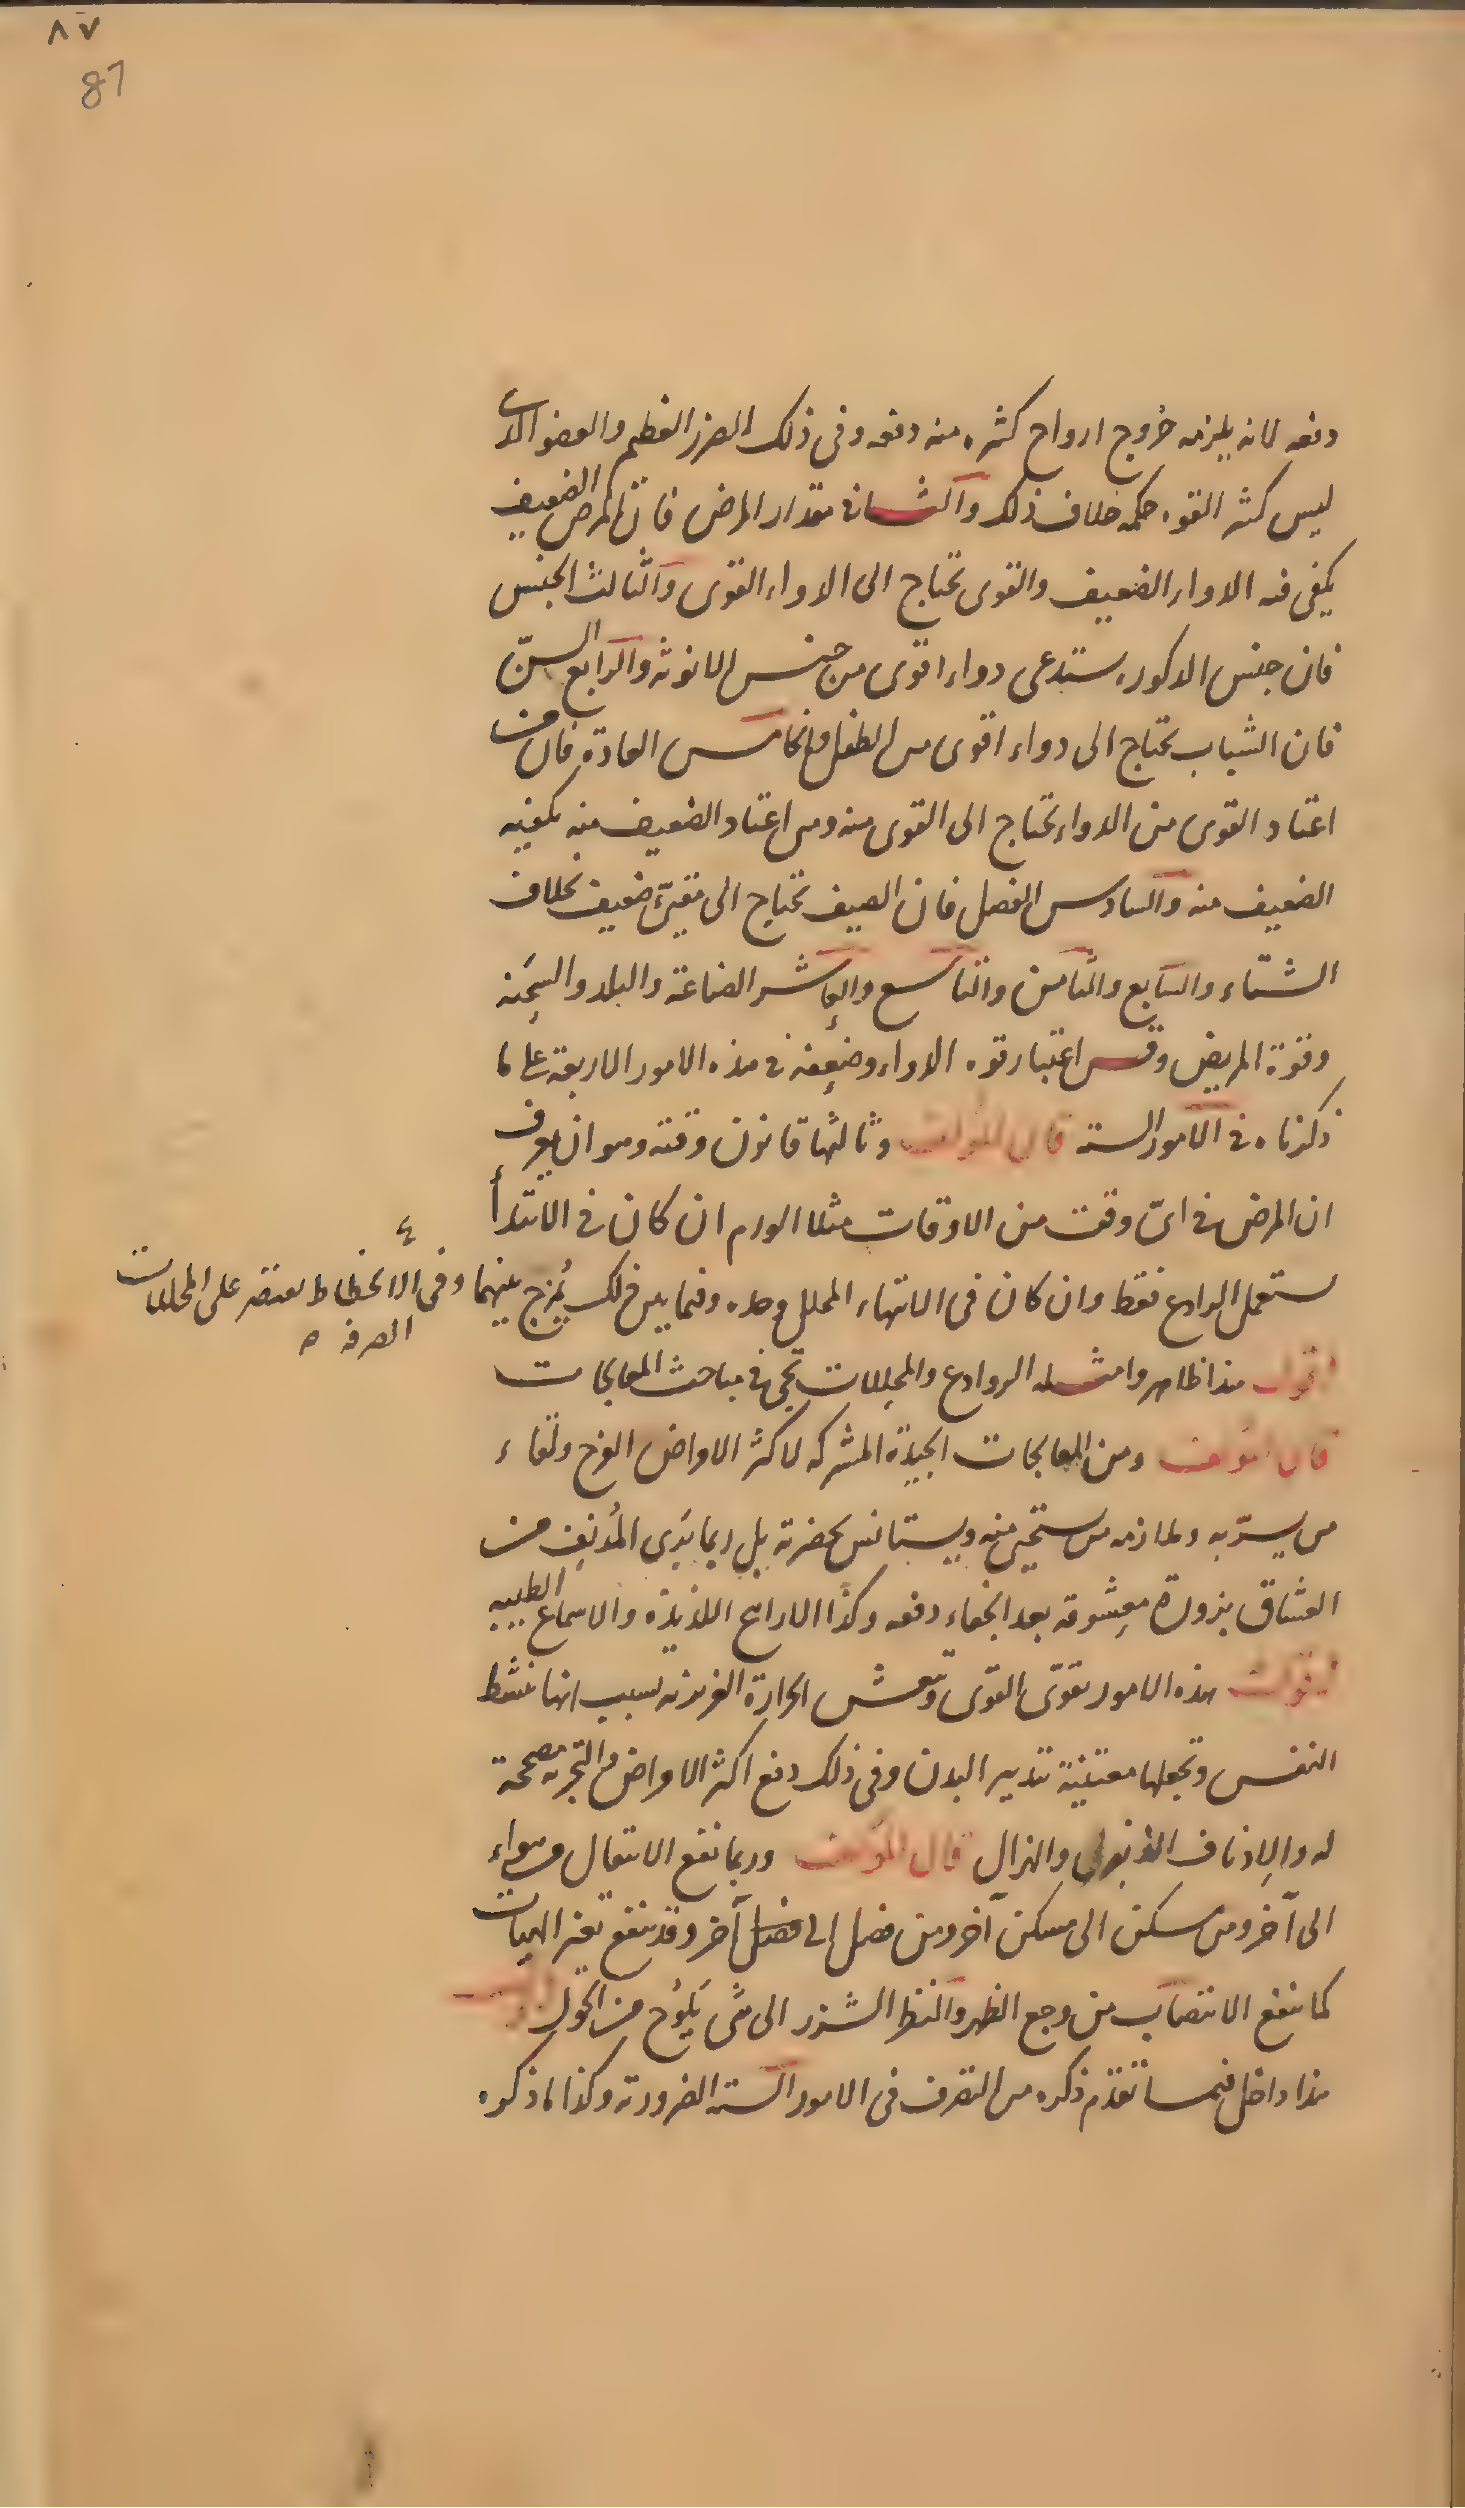 ٨٧
87
دفعه لانه يلزمه خُروج ارواح كثيره منه دفعه وفى ذلك الضرر العظيم والعضو الذى
ليس كثير القوه حكمه خلاف ذلك والثانى مقدار المرض فان المرض الضعيف
يكفى فيه الدواء الضعيف والقوى يحتاج الى الدواء القوى والثالث الجنس
فان جنس الذكوره يستدعى دواء اقوى من جنس الانوثه والرابع السنّ
فان الشباب يحتاج الى دواء اقوى من الطفل والخامس العادة فان من
اعتاد القوى من الدواء يحتاج الى القوى منه ومن اعتاد الضعيف منه يكفيه
الضعيف منه والسادس الفصل فان الصيف يحتاج الى مقيّئ ضعيف بخلاف
الشتاء والسابع والثامن والتاسع والعاشر الصناعة والبلد والسِحَنه
وقوة المريض وقس اعتبار قوه الدواء وضعفه فى هذه الامور الاربعة على ما
ذكرناه فى الامور السته قال المؤلف وثالثها قانون وقته وهو ان يعرف
ان المرض فى اىّ وقت من الاوقات مثلا الورم ان كان فى الابتدأ
يستعمل الرادع فقط وان كان فى الانتهاء المحلل وحده وفيما بين ذلك يُمزج بينهما
وفى الانحطاط يقتصر على المحللات
الصرفه ٥
اقول هذا ظاهر وامثله الروادع والمحللات تجى فى مباحث المعالجات
قال المؤلف ومن المعالجات الجيدة المشركه لاكثر الامراض الفرح ولقاء
من يسرّ به وملازمه من يستحيى منه ويستانس بحضرته بل ربما يَبرى المُدنِف من
العشاق بزورة معشوقه بعد الجفاء دفعه وكذا الاراييح اللذيذه والاسماع الطيبه
اقول هذه الامور تقوّى القوّى وتنعش الحرارة الغريزيه بسبب انها تنشط
النفس وتجعلها معتنية بتدبير البدن وفى ذلك دفع اكثر الامراض والتجربه مصححة
له والإدناف الذبول والهزال قال المؤلف وربما نفع الانتقال من هواء
الى آخر ومن مسكن الى مسكن آخر ومن فصل الى فصل آخر وقد ينفع تغير الهيات
كما ينفع الانتصاب من وجع الظهر والنظر الشزر الى شى يَلوُح من الحول اقول
هذا داخل فيما تقدّم ذكره من التصرف فى الامور السته الضروريه وكذا ما ذكره